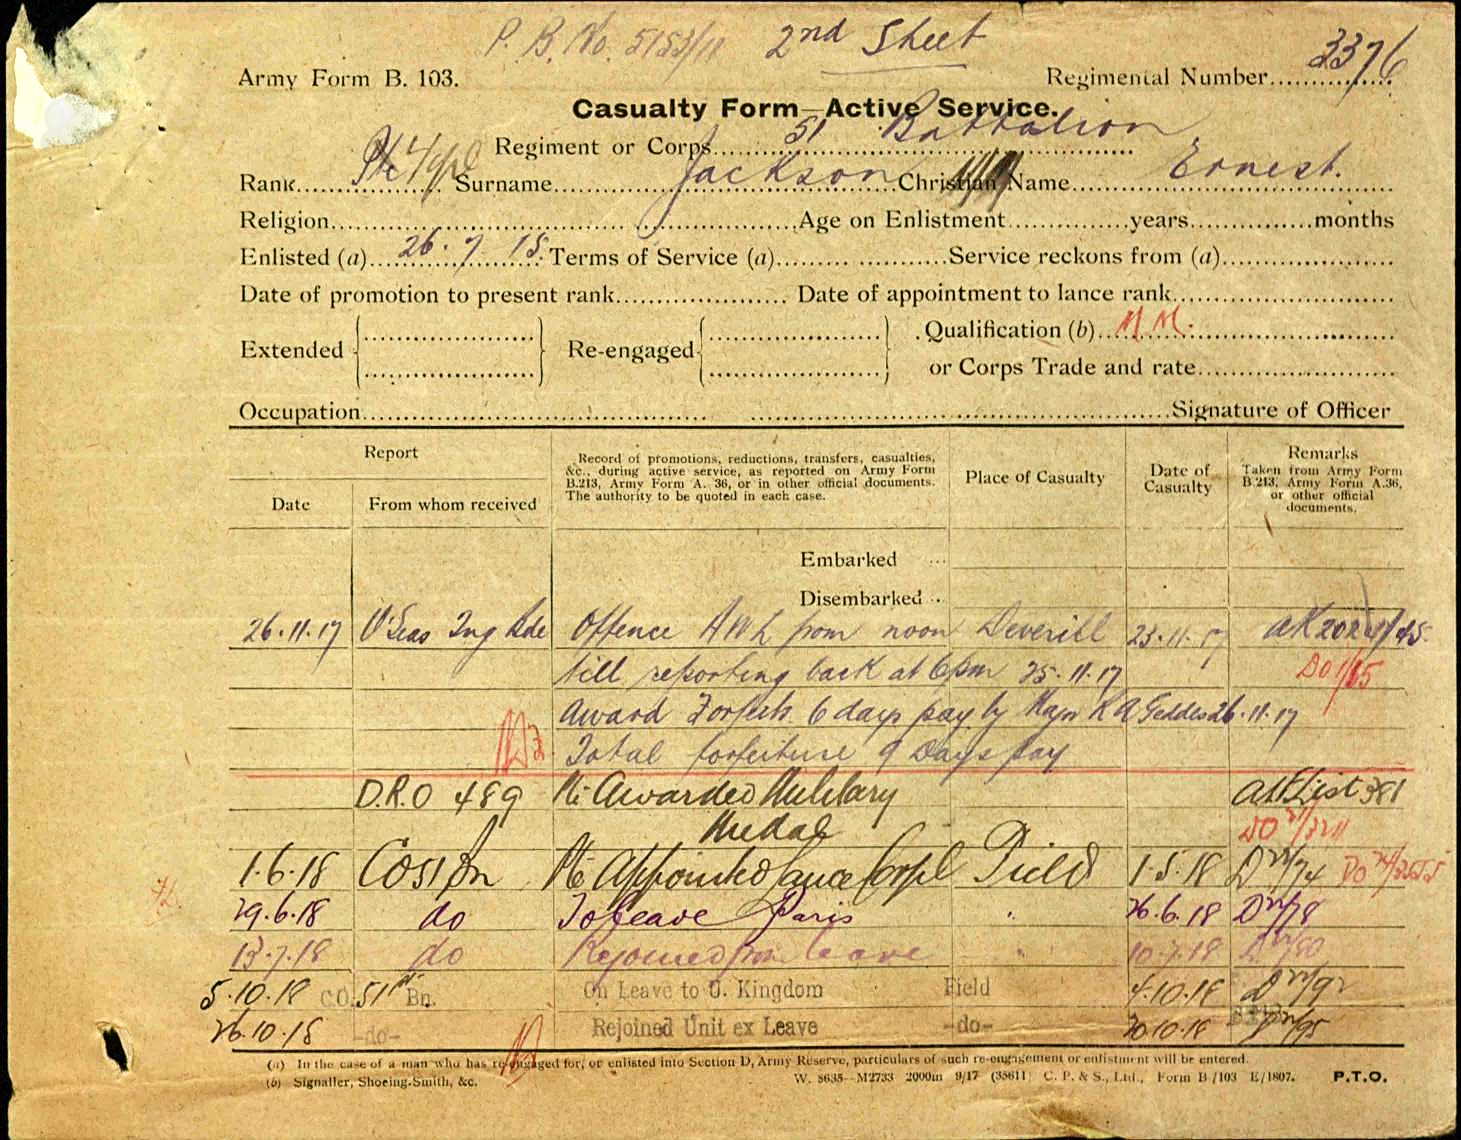 P. B. No. 5153/11 2nd Sheet
3376
Army Form B. 103. Regimental Number
Casualty Form—Active Service.
Regiment or Corps 51 Battalion
Rank Pte L/Cpl Surname Jackson Christian Name Ernest.
Religion Age on Enlistment years months
Enlisted (a) 26.7.15. Terms of Service (a) Service reckons from (a)
Date of promotion to present rank Date of appointment to lance rank
Extended Re-engaged Qualification (b) M.M.
or Corps Trade and rate
Occupation Signature of Officer
Report Record of promotions, reductions, transfers, casualties, &c., during active service, as reported on Army Form B.213, Army Form A. 36, or in other official documents. The authority to be quoted in each case. Place of Casualty Date of Casualty Remarks Taken from Army Form B.213, Army Form A.36, or other official documents.
Date From whom received
Embarked
Disembarked
26.11.17 O'Seas Tng Bde Offence AWL from noon Deverill 23.11.17
till reporting back at 6pm 25.11.17
Award Forfeits 6 days pay by Major K A Geddes 26.11.17
Total forfeiture 9 Days pay
D.R.O 489 Awarded Military
Medal
List 381
1.6.18 CO 51 Bn Appointed Lance Corpl Field 1.5.18
29.6.18 do To Leave Paris " 26.6.18
13.7.18 do Rejoined from leave " 10.7.18
5.10.18 C.O. 51st Bn. On Leave to U. Kingdom Field 4.10.18
26.10.18 -do- Rejoined Unit ex Leave -do- 20.10.18
(a) In the case of a man who has re-engaged for, or enlisted into Section D, Army Reserve, particulars of such re-engagement or enlistment will be entered.
(b) Signaller, Shoeing-Smith, &c. W. 8635—M2733 2000m 9/17 (35611) C. P. & S., Ltd., Form B/103 E/1807. P.T.O.